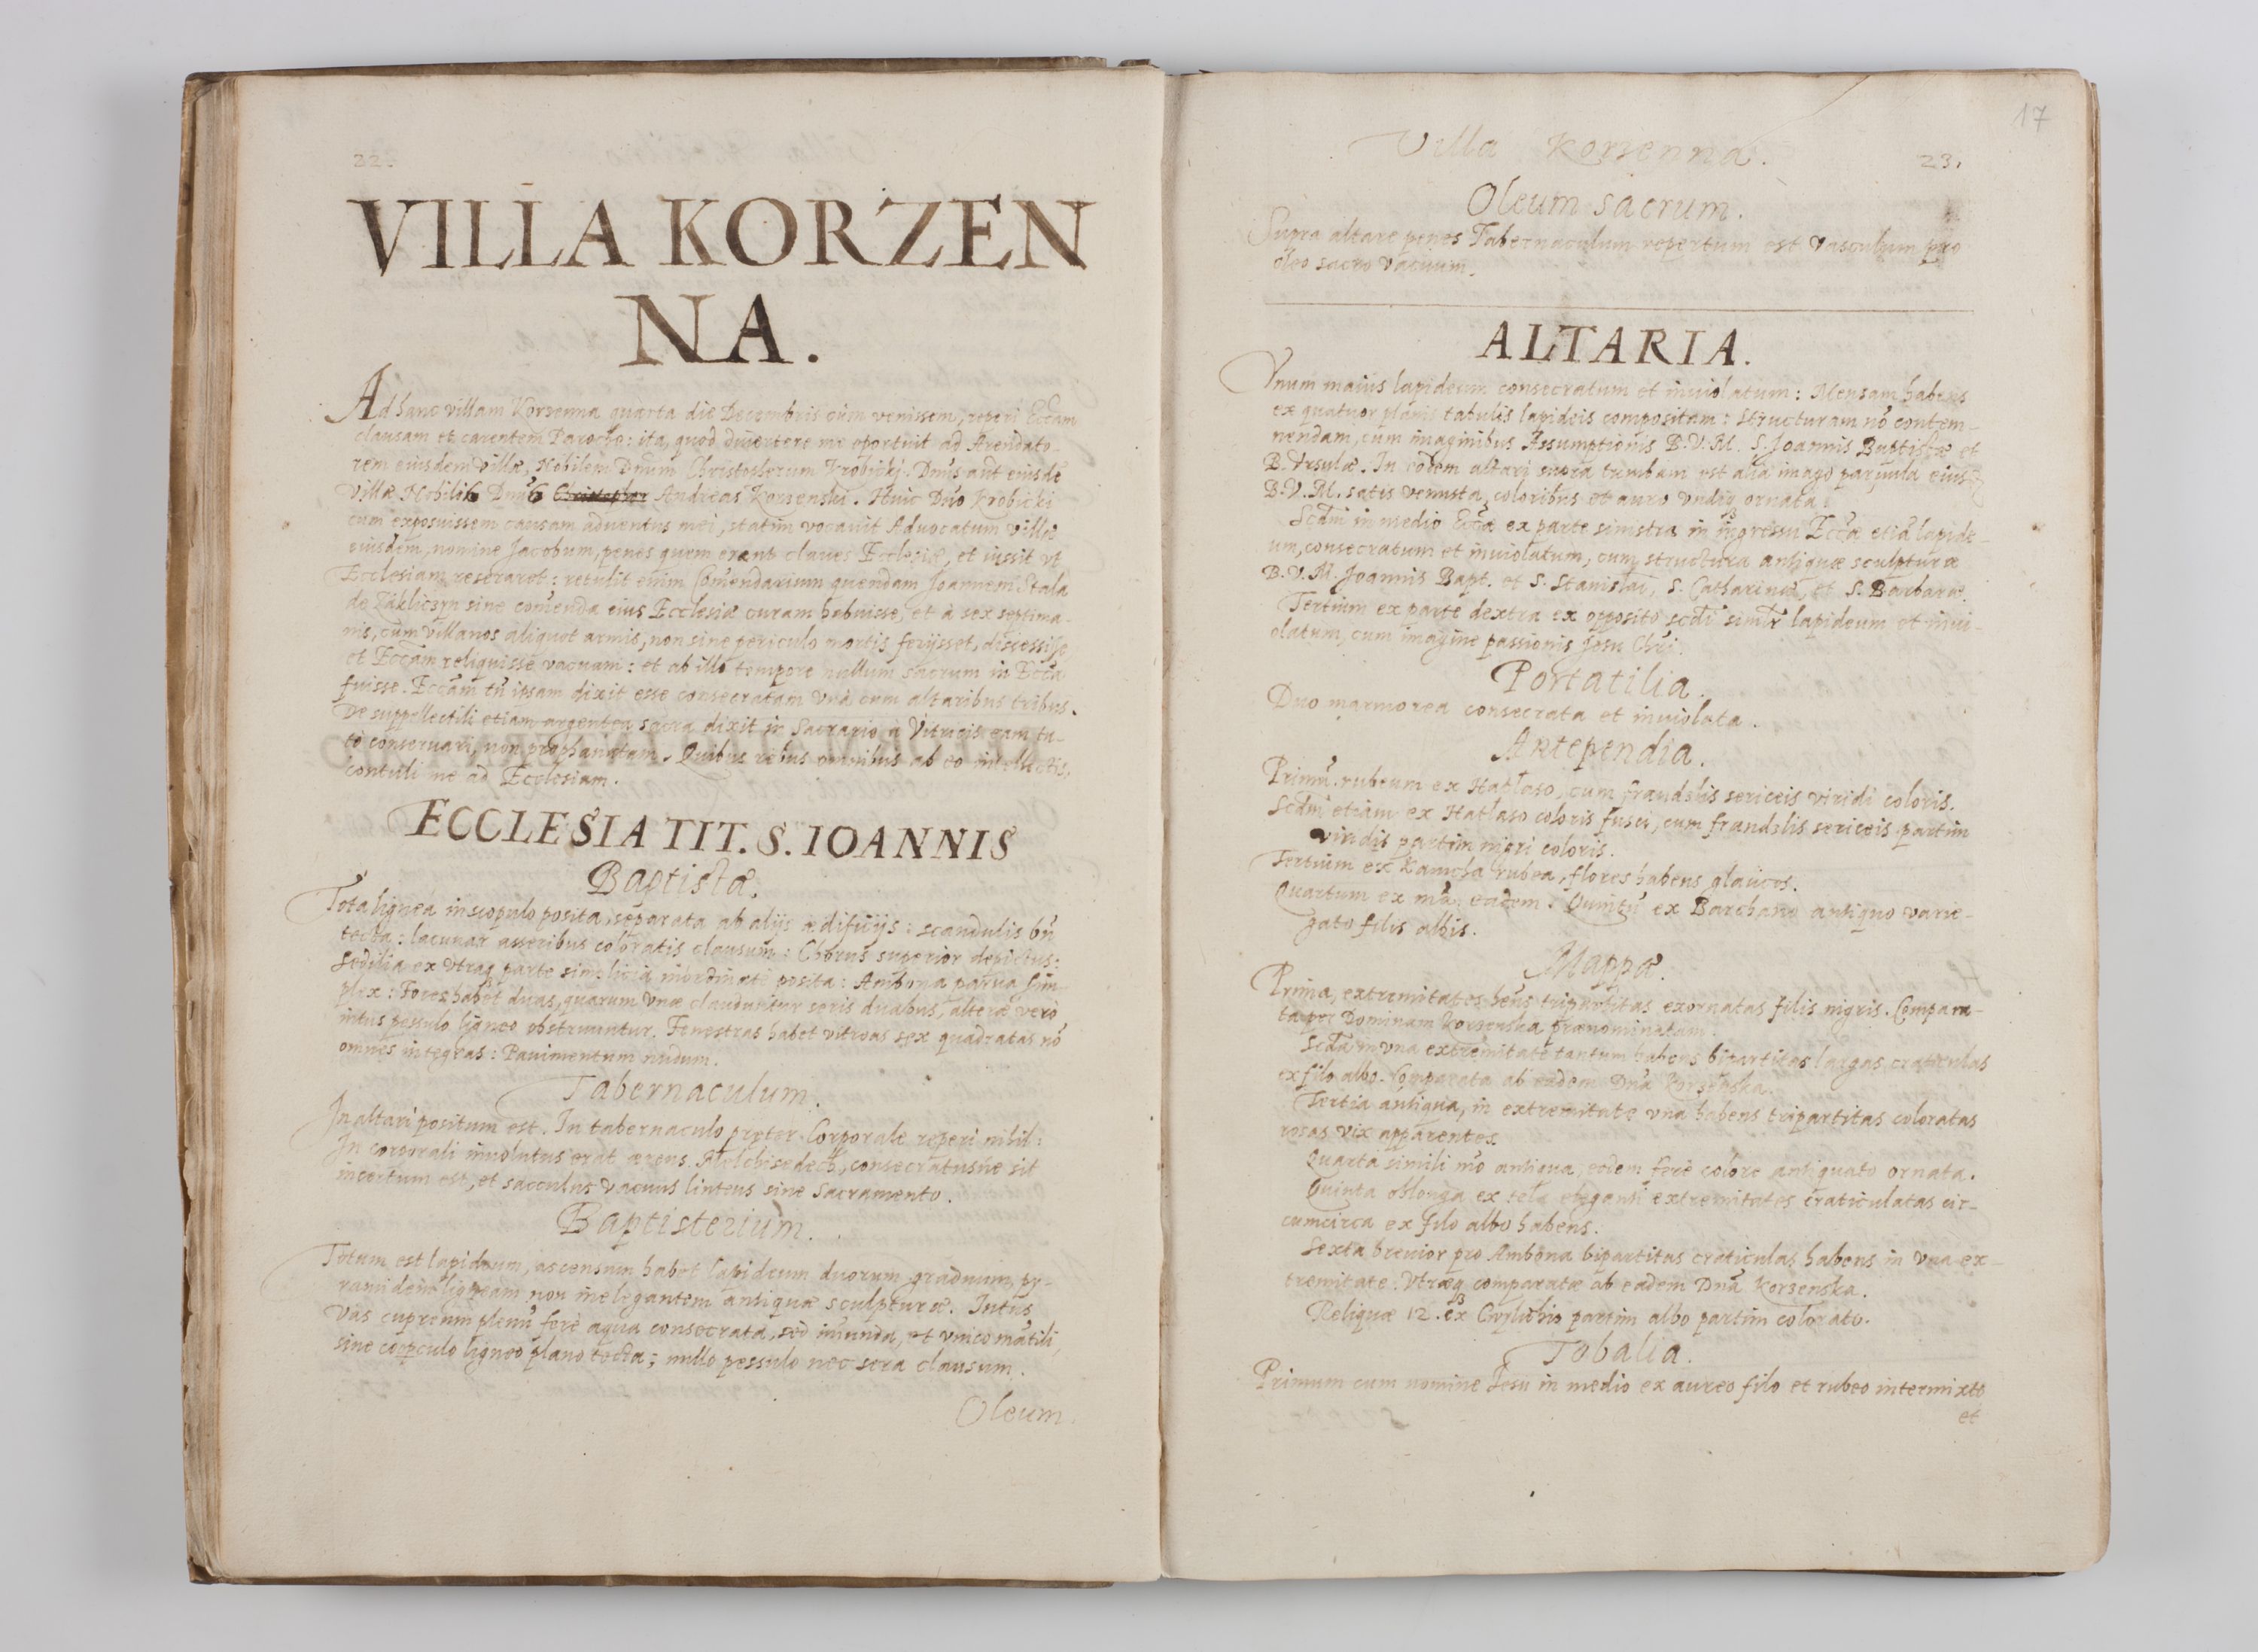 22.
VILLA KORZEN
NA.
Ad hanc villam Korzenna quarta die Decembris cùm venissem, reperi Eccam
clausam et carentem Parocho: ita, quod diuertere me oportuit ad Arendato-
rem eiusdem villæ, Nobilem Dnum Christoslerum Krobicki. Dnus aut eiusde
villæ Nobilis Dnus Andreas Korzenski. Huic Dno Krobicki
cum exposuissem causam aduentus mei, statim vocauit Aduocatum villæ
eiusdem, nomine Jacobum, penes quem erant claues Ecclesiæ, et iussit vt
Ecclesiam reseraret: retulit enim Comendarium quendam Joannem Stala
de Zakliczyn sine comenda eius Ecclesiæ curam habuisse, et à sex septima-
nis, cùm villanos aliquot armis, non sine periculo mortis ferijsset, discessisse
et Eccam reliquisse vacuam: et ab illo tempore nullum sacrum in Ecca
fuisse. Eccam tn ipsam dixit esse consecratam vnà cum altaribus tribus.
De suppellectili etiam argentea sacra dixit in Sacrario à Vitricis eam tu-
tò conseruari, non prophanatam. Quibus rebus omnibus ab eo intellectis,
contuli me ad Ecclesiam.
ECCLESIA TIT. S. IOANNIS
Baptistæ.
Tota lignea in scopulo posita, separata ab alijs ædificijs: scandulis bn
tecta: lacunar asseribus coloratis clausum: Chorus superior depictus:
sedilia ex vtraq parte simplicia inordinatè posita: Ambona parua sim-
plex: Fores habet duas, quarum vnæ clauduntur seris duabus, alteræ verò
intus pessulo ligneo obstruuntur. Fenestras habet vitreas sex quadratas no
omnes integras: Pauimentum nudum.
Tabernaculum.
In altari positum est. In tabernaculo præter Corporale reperi nihil:
In corporali inuolutus erat æreus Melchisedech, consecratusne sit
incertum est, et sacculus vacuus linteus sine Sacramento.
Baptisterium.
Totum est lapideum, ascensum habet lapideum duorum graduum, py-
ramidem ligneam non inelegantem antiquæ sculpturæ. Intus
Vas cupreum plenu ferè aqua consecrata, sed imunda, et vnico mutili,
sine coopculo ligneo plano tecta; nullo pessulo nec sera clausum.
Oleum.
17
Villa Korzenna.
23.
Oleum sacrum.
Supra altare penes Tabernaculum repertum est vasculum pro
oleo sacro vacuum.
ALTARIA.
Vnum maius lapideum consecratum et inuiolatum: Mensam habens
ex quatuor planis tabulis lapideis compositam: structuram no contem-
nendam, cum imaginibus Assumptionis B.V.M. S. Joannis Baptistæ et
B. Vrsulæ. In eodem altari supra tumbam est alia imago paruula eiusd
B.V.M. satis venusta, coloribus et auro vndiq ornata.
Scdm in medio Eccæ ex parte sinistra in ingressu Eccæ etia lapide-
um, consecratum et inuiolatum, cum structura antiquæ sculpturæ
B.V.M. Joannis Bapt. et S. Stanislai, S. Catharinæ, et S. Barbaræ.
Tertium ex parte dextra ex opposito scdi simlr lapideum et inui-
olatum, cum imagine passionis Jesu Chri.
Portatilia.
Duo marmorea consecrata et inuiolata.
Antependia.
Primu rubeum ex Hatlaso, cum frandzlis sericeis viridi coloris.
Scdm etiam ex Hatlaso coloris fusci, cum frandzlis sericeis partim
viridis partim nigri coloris.
Tertium ex Kamcha rubea, flores habens glaucos.
Quartum ex ma eadem. Quintu ex Barchano antiquo varie-
gato filis albis.
Mappæ.
Prima, extremitates hens tripartitas exornatas filis nigris. Compara-
ta per Dominam Korzenska prænominatam.
Scda in vna extremitate tantum habens bipartitas largas craticulas
ex filo albo. Comparata ab eadem Dna Korzenska.
Tertia antiqua, in extremitate vna habens tripartitas coloratas
rosas vix apparentes.
Quarta simili mo antiqua, eodem ferè colore antiquato ornata.
Quinta oblonga ex tela eleganti extremitates craticulatas cir-
cumcirca ex filo albo habens.
Sexta breuior pro Ambona bipartitas craticulas habens in vna ex-
tremitate. Vtræq comparatæ ab eadem Dna Korzenska.
Reliquæ 12. ex partim albo partim colorato.
Tobalia.
Primum cum nomine Jesu in medio ex aureo filo et rubeo intermixto
et